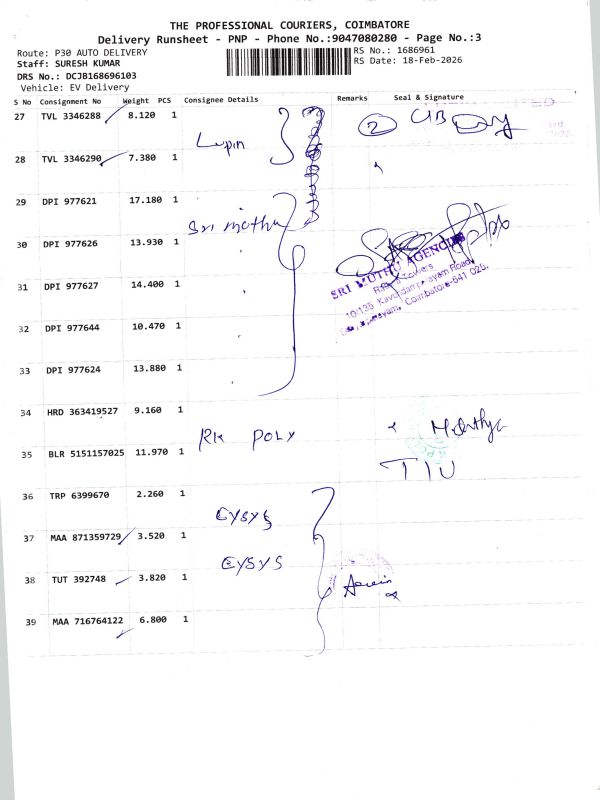 THE PROFESSIONAL COURIERS, COIMBATORE
Delivery Runsheet - PNP - Phone No.:9047080280 - Page No.:3
Route: P30 AUTO DELIVERY
RS No.: 1686961
Staff: SURESH KUMAR
RS Date: 18-Feb-2026
DRS No.: DCJB168696103
Vehicle: EV Delivery
S No Consignment No Weight PCS Consignee Details Remarks Seal & Signature
27 TVL 3346288 8.120 1
2
Lupin
28 TVL 3346290 7.380 1
29 DPI 977621 17.180 1
Sri mothu
30 DPI 977626 13.930 1
SRI MUTHU AGENCIES
31 DPI 977627 14.400 1
Towers
10/135, Kavundampalayam Road,
Coimbatore-641 025.
32 DPI 977644 10.470 1
33 DPI 977624 13.880 1
34 HRD 363419527 9.160 1
RK POLY
35 BLR 5151157025 11.970 1
36 TRP 6399670 2.260 1
EYSYS
37 MAA 871359729 3.520 1
EYSYS
38 TUT 392748 3.820 1
39 MAA 716764122 6.800 1